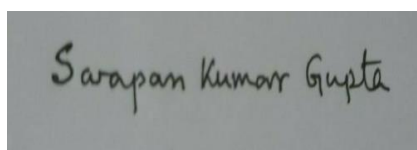 Sarapan Kumar Gupta